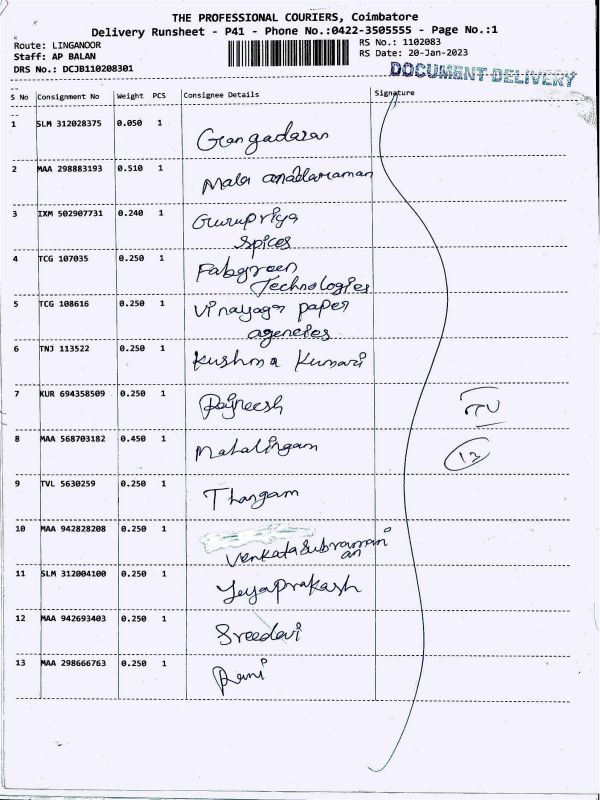 THE PROFESSIONAL COURIERS, Coimbatore
Delivery Runsheet - P41 - Phone No.:0422-3505555 - Page No.:1
Route: LINGANOOR
RS No.: 1102083
Staff: AP BALAN
RS Date: 20-Jan-2023
DRS No.: DCJB110208301
DOCUMENT DELIVERY
S No Consignment No Weight PCS Consignee Details Signature
1 SLM 312028375 0.050 1 Gangadaran
2 MAA 298883193 0.510 1 Mala
3 IXM 502907731 0.240 1 Gurupriya
Spices
4 TCG 107035 0.250 1 Fabgreen
Technologies
5 TCG 108616 0.250 1 Vinayaga paper
agencies
6 TNJ 113522 0.250 1 Kushma Kumari
7 KUR 694358509 0.250 1 Rajneesh
8 MAA 568703182 0.450 1 Mahalingam
9 TVL 5630259 0.250 1 Thangam
10 MAA 942828208 0.250 1 Venkatasubramani
an
11 SLM 312004100 0.250 1 Jeyaprakash
12 MAA 942693403 0.250 1 Sreedevi
13 MAA 298666763 0.250 1 Rani
TV
13